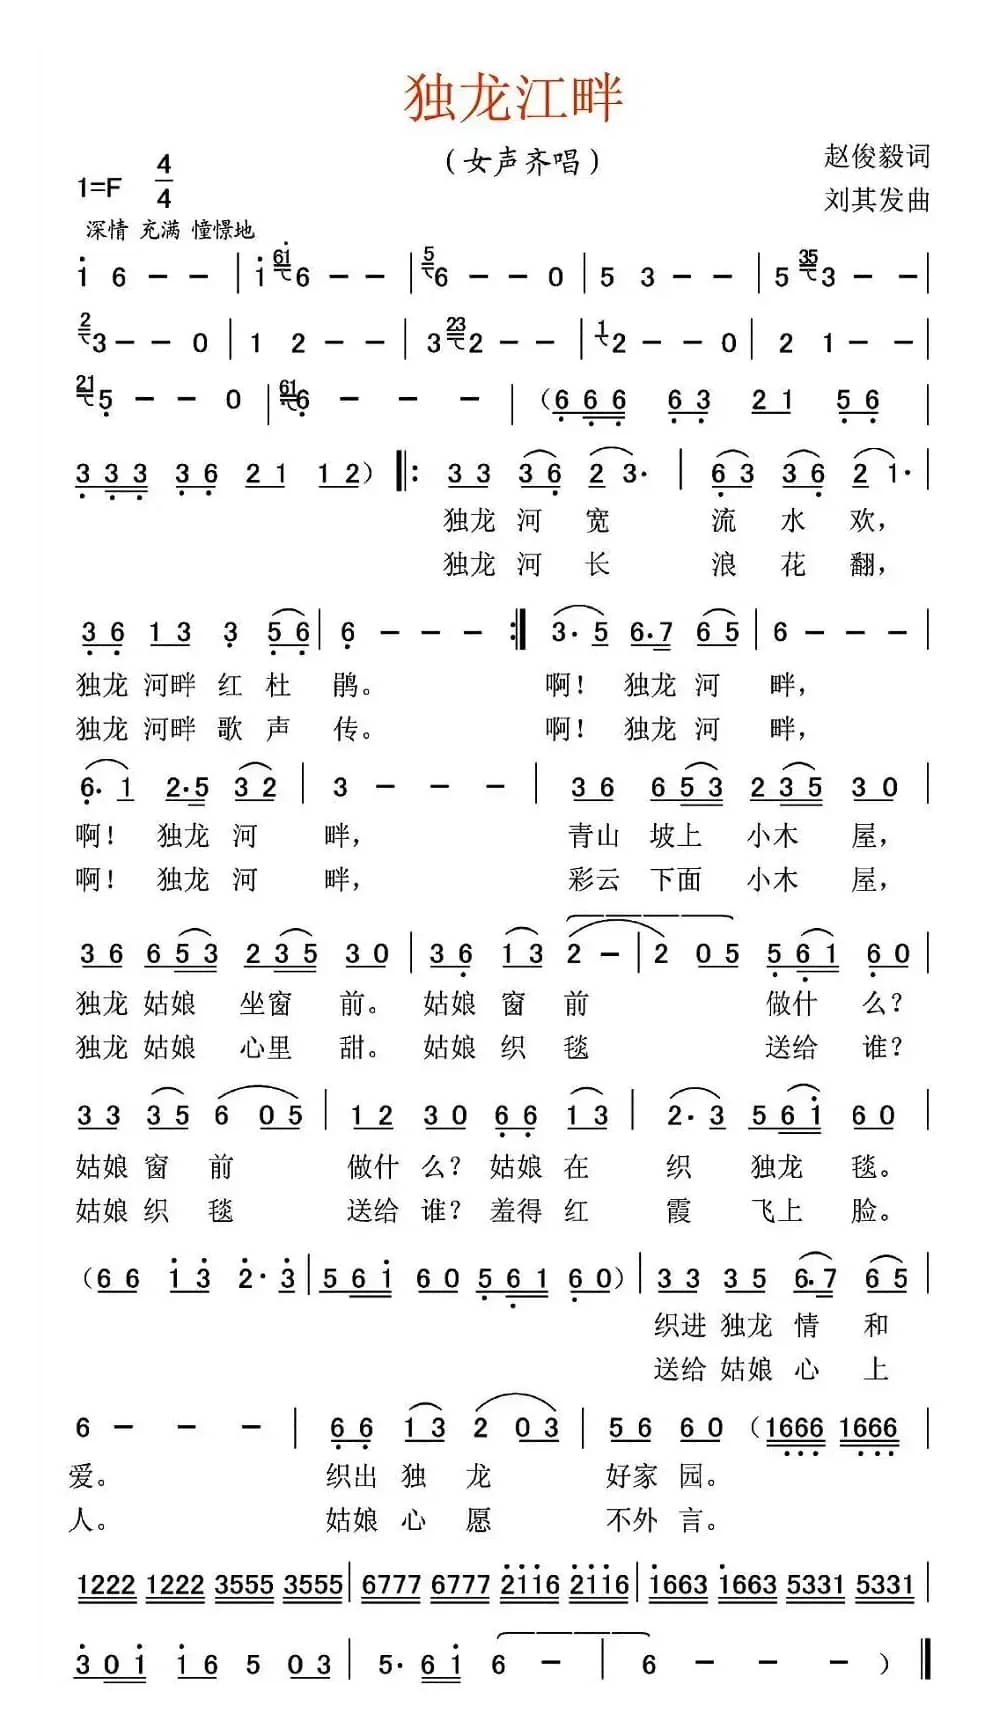 独龙江畔
(女声齐唱)
赵俊毅词
1=F 4/4
刘其发曲
深情 充满 憧憬地
i 6 - - | i 6i 6 - - | 5 6 - - 0 | 5 3 - - | 5 35 3 - - |
2 3 - - 0 | 1 2 - - | 3 23 2 - - | 1 2 - - 0 | 2 1 - - |
21 5 - - 0 | 61 6 - - - | (6 6 6 6 3 2 1 5 6 |
3 3 3 3 6 2 1 1 2) |: 3 3 3 6 2 3· | 6 3 3 6 2 1· |
独龙 河 宽 流 水 欢,
独龙 河 长 浪 花 翻,
3 6 1 3 3 5 6 | 6 - - - :| 3· 5 6·7 6 5 | 6 - - - |
独龙 河畔 红 杜 鹃。 啊! 独龙 河 畔,
独龙 河畔 歌 声 传。 啊! 独龙 河 畔,
6· 1 2·5 3 2 | 3 - - - | 3 6 6 5 3 2 3 5 3 0 |
啊! 独龙 河 畔, 青山 坡上 小木 屋,
啊! 独龙 河 畔, 彩云 下面 小木 屋,
3 6 6 5 3 2 3 5 3 0 | 3 6 1 3 2 - | 2 0 5 5 6 1 6 0 |
独龙 姑娘 坐窗 前。 姑娘 窗 前 做什 么?
独龙 姑娘 心里 甜。 姑娘 织 毯 送给 谁?
3 3 3 5 6 0 5 | 1 2 3 0 6 6 1 3 | 2· 3 5 6 i 6 0 |
姑娘 窗 前 做什 么? 姑娘 在 织 独龙 毯。
姑娘 织 毯 送给 谁? 羞得 红 霞 飞上 脸。
(6 6 i 3 2· 3 | 5 6 i 6 0 5 6 1 6 0) | 3 3 3 5 6·7 6 5 |
织进 独龙 情 和
送给 姑娘 心 上
6 - - - | 6 6 1 3 2 0 3 | 5 6 6 0 (1666 1666 |
爱。 织出 独 龙 好家 园。
人。 姑娘 心 愿 不外 言。
1222 1222 3555 3555 | 6777 6777 2116 2116 | i663 i663 5331 5331 |
3 0 i i 6 5 0 3 | 5· 6 i 6 - | 6 - - - ) ‖